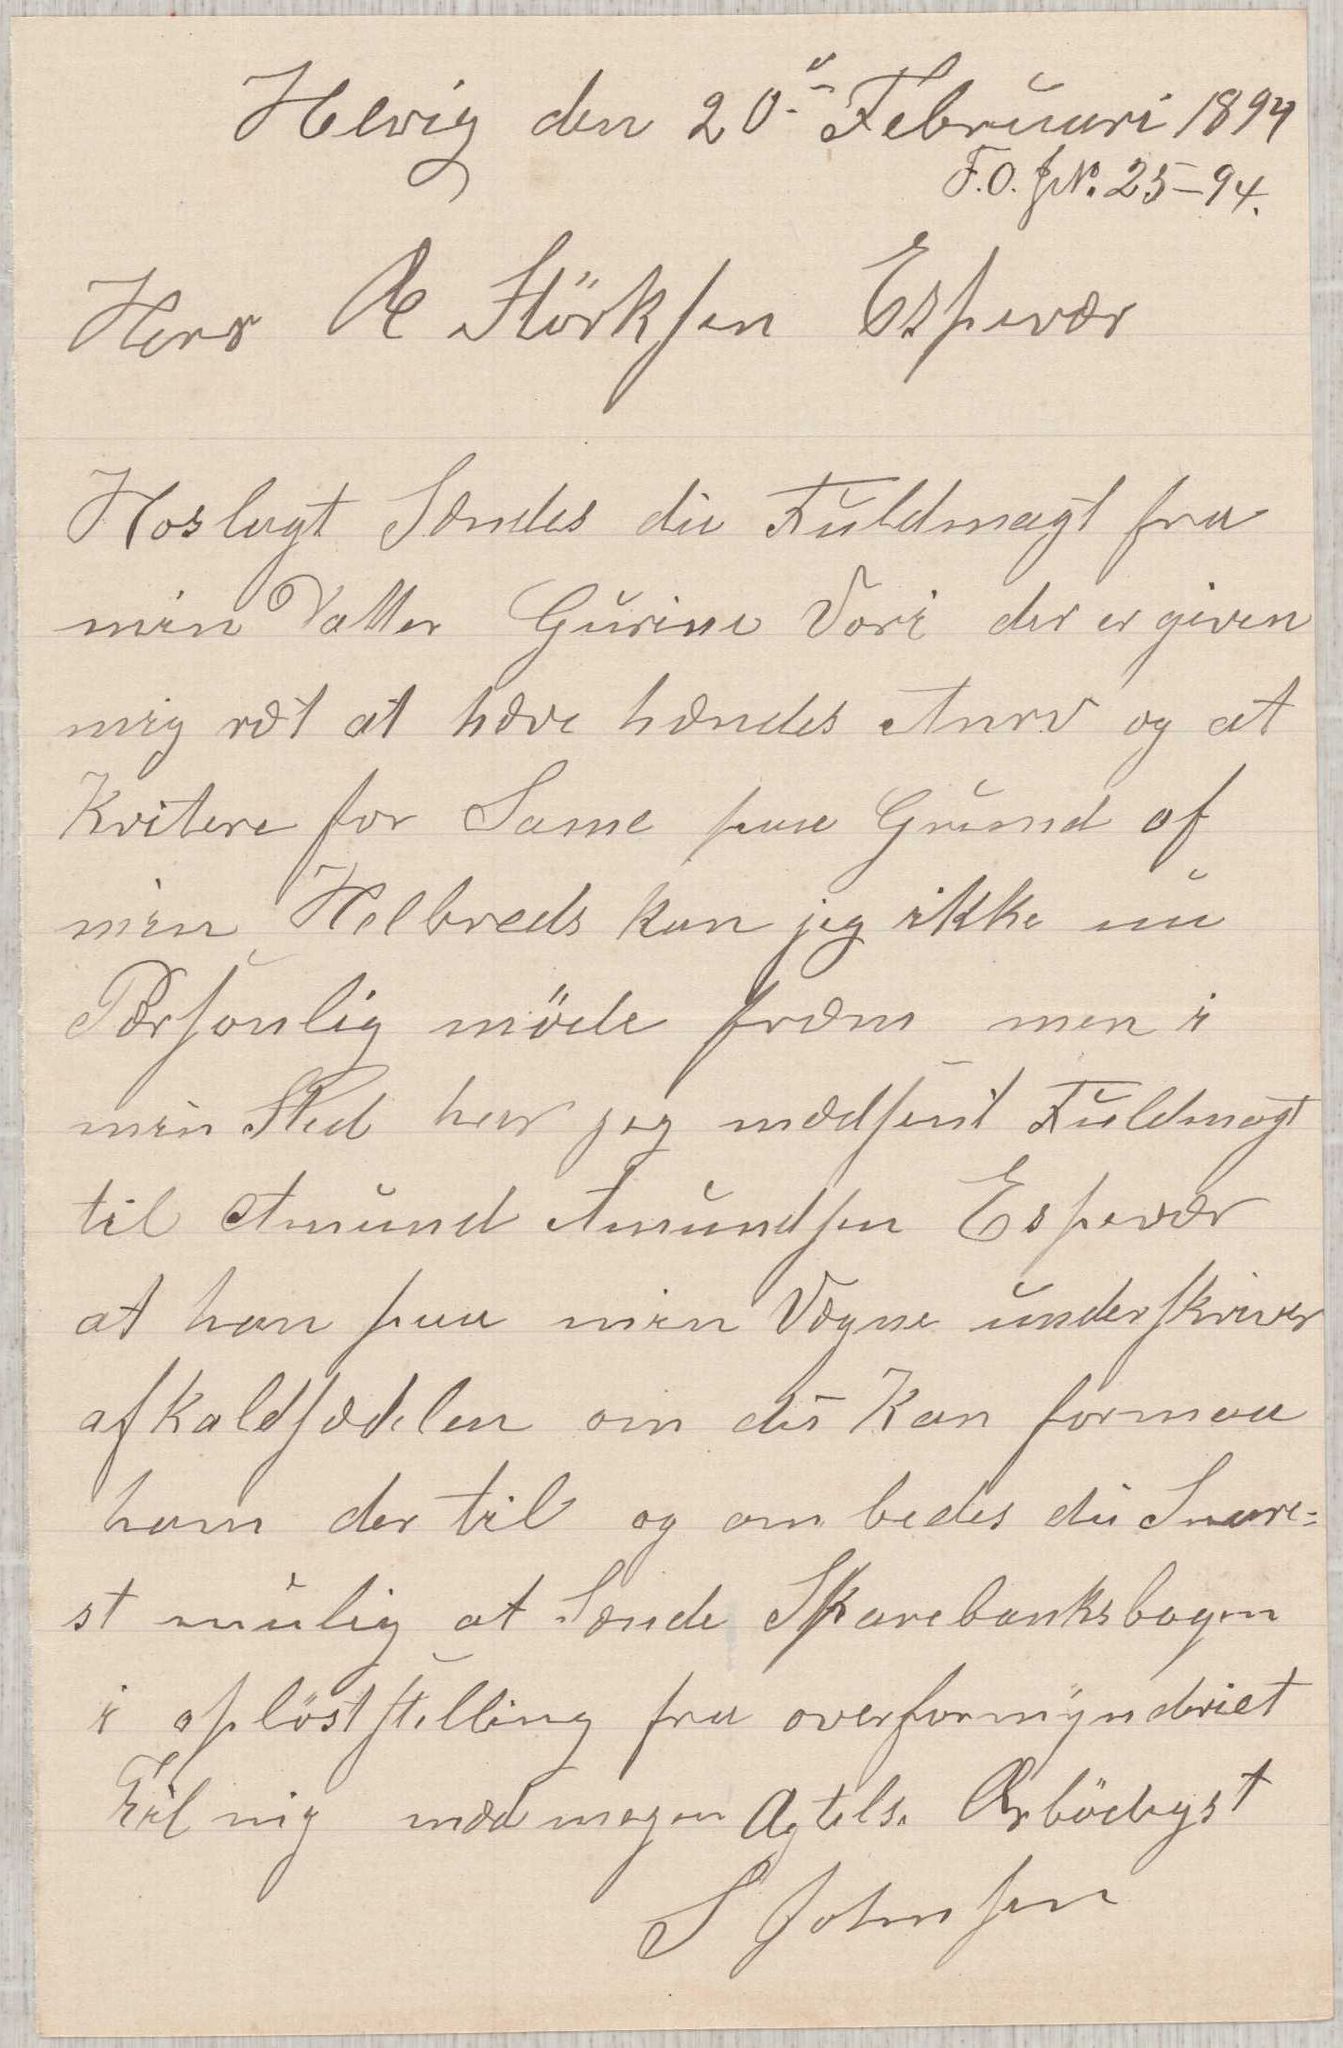 Helvig den 20de Februari 1894
F.O. J.N. 25-94.
Herr Æ Störksen Espevær
Hoslagt Sændes du Fuldmagt fra
min Datter Gurine Vori der er given
mig ræt at hæve hændes Anrv og at
Kvitere for Same paa Grund af
min Helbreds kan jeg ikke nu
Pærsonlig möde fræm men i
min Sted har jeg mædsent Fuldmagt
til Amund Amundsen Espevær
at han paa min Vægne underskriver
afkaldsædelen om du Kan formaa
ham der til og om bedes du Snare=
st mulig at Sænde Sparebanksbogen
i oplöst stilling fra overformynderiet
Til mig mæd megen Agtels. Ærbödigst
S Johnsen